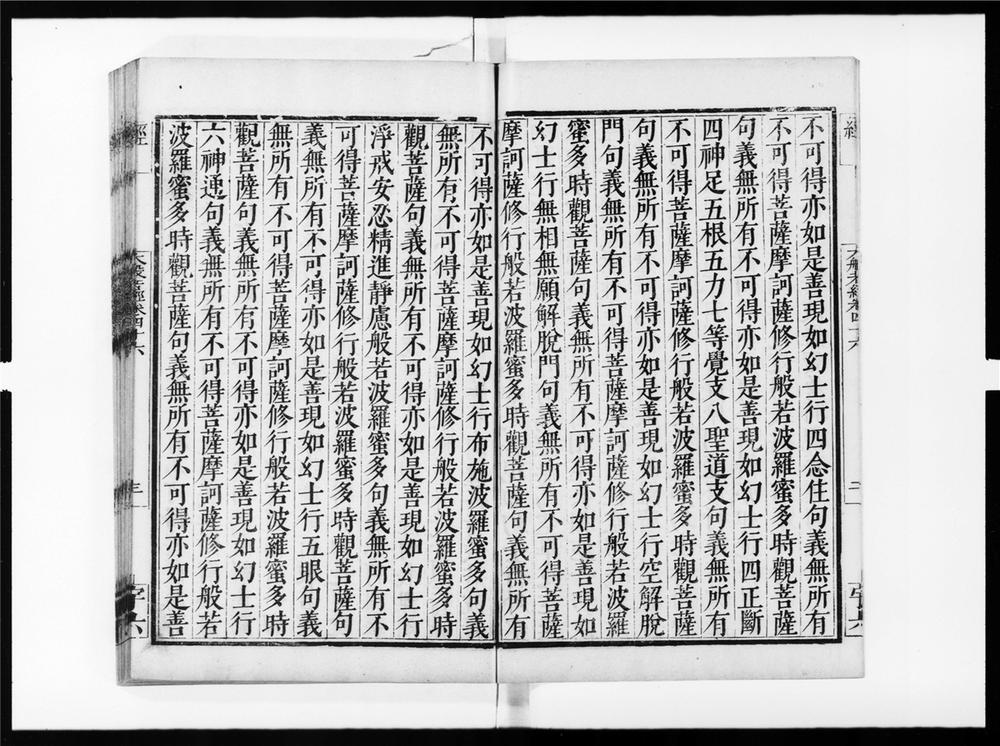 不可得亦如是善現如幻士行四念住句義無所有
不可得菩薩摩訶薩修行般若波羅蜜多時觀菩薩
句義無所有不可得亦如是善現如幻士行四正斷
四神足五根五力七等覺支八聖道支句義無所有
不可得菩薩摩訶薩修行般若波羅蜜多時觀菩薩
句義無所有不可得亦如是善現如幻士行空解脫
門句義無所有不可得菩薩摩訶薩修行般若波羅
蜜多時觀菩薩句義無所有不可得亦如是善現如
幻士行無相無願解脫門句義無所有不可得菩薩
摩訶薩修行般若波羅蜜多時觀菩薩句義無所有
不可得亦如是善現如幻士行布施波羅蜜多句義
無所有不可得菩薩摩訶薩修行般若波羅蜜多時
觀菩薩句義無所有不可得亦如是善現如幻士行
淨戒安忍精進靜慮般若波羅蜜多句義無所有不
可得菩薩摩訶薩修行般若波羅蜜多時觀菩薩句
義無所有不可得亦如是善現如幻士行五眼句義
無所有不可得菩薩摩訶薩修行般若波羅蜜多時
觀菩薩句義無所有不可得亦如是善現如幻士行
六神通句義無所有不可得菩薩摩訶薩修行般若
波羅蜜多時觀菩薩句義無所有不可得亦如是善
經 大般若經卷四十六 三 字六